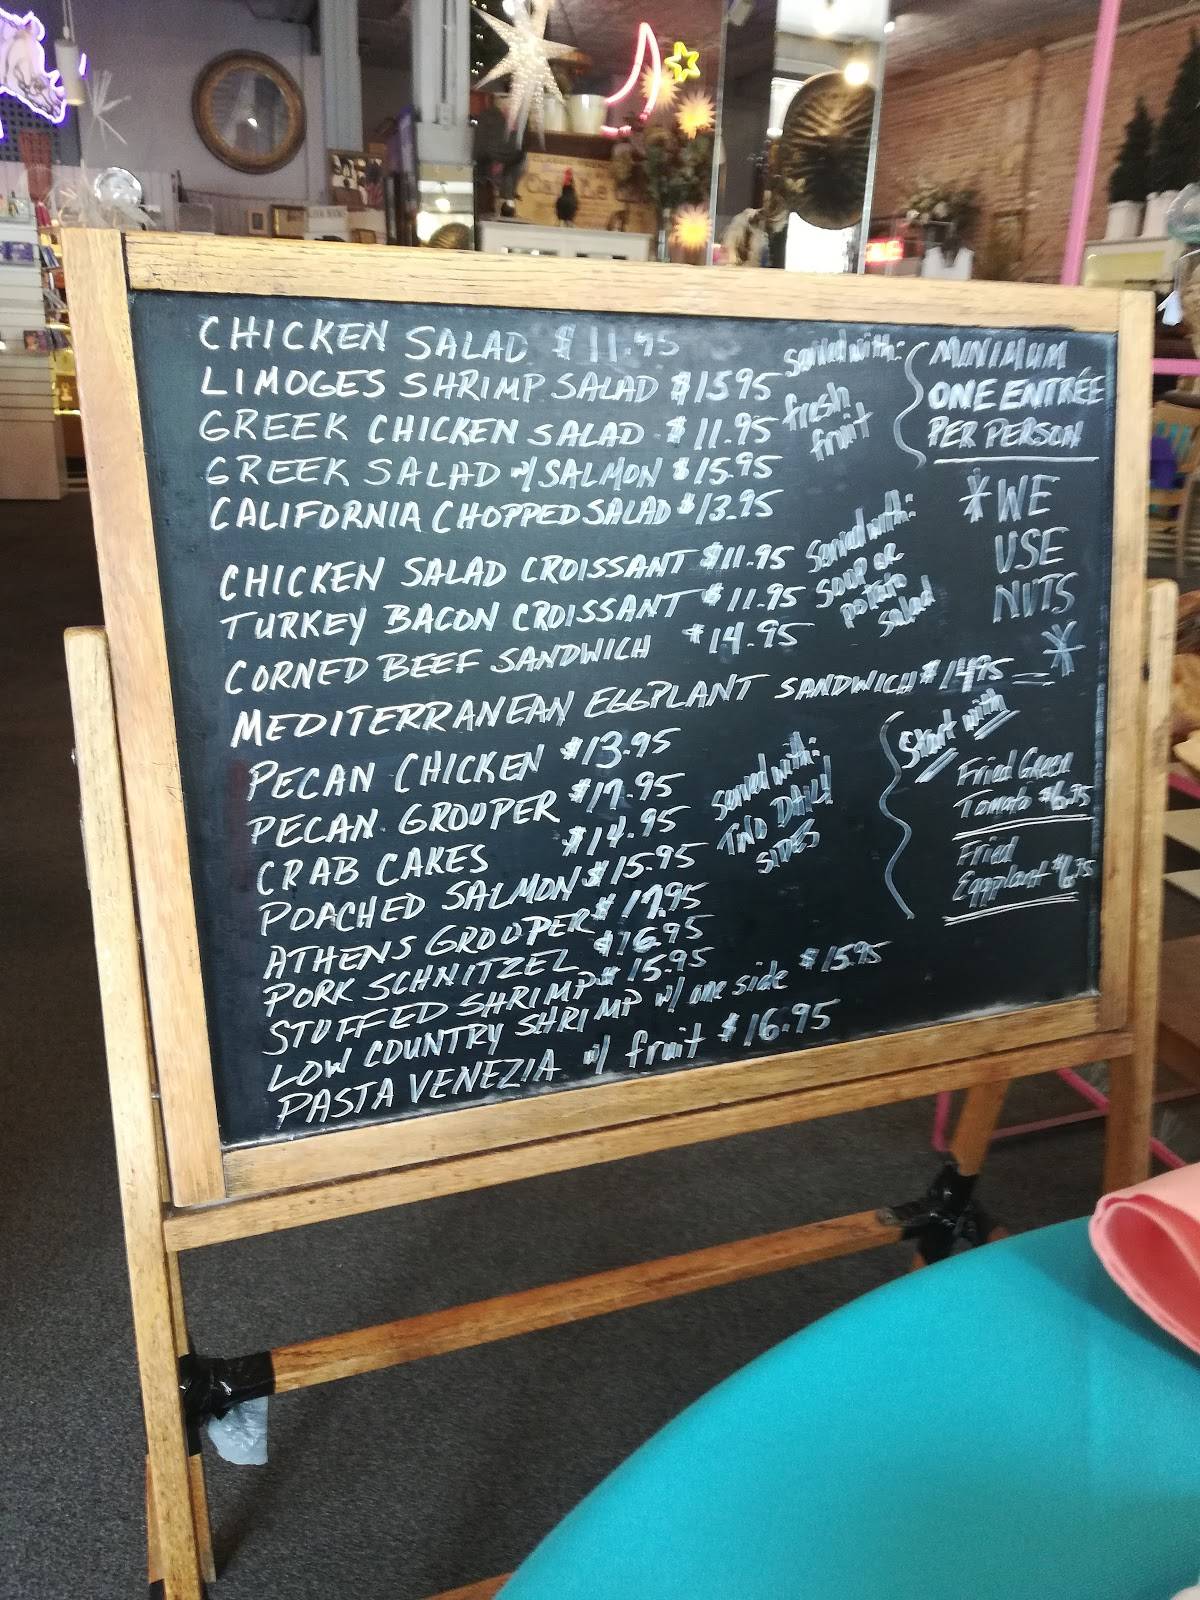 CHICKEN SALAD $11.95
LIMOGES SHRIMP SALAD $15.95
GREEK CHICKEN SALAD $11.95
GREEK SALAD w/SALMON $15.95
CALIFORNIA CHOPPED SALAD $13.95
Served with:
fresh
fruit
MINIMUM
ONE ENTRÉE
PER PERSON
CHICKEN SALAD CROISSANT $11.95
TURKEY BACON CROISSANT $11.95
CORNED BEEF SANDWICH $14.95
MEDITERRANEAN EGGPLANT SANDWICH $14.95
Served with:
SOUP OR
potato
salad
*WE
USE
NUTS
*
PECAN CHICKEN $13.95
PECAN GROUPER $17.95
CRAB CAKES $14.95
POACHED SALMON $15.95
ATHENS GROUPER $17.95
PORK SCHNITZEL $16.95
STUFFED SHRIMP $15.95
LOW COUNTRY SHRIMP w/ one side $15.95
PASTA VENEZIA w/ fruit $16.95
Served with:
TWO DAILY
SIDES
Start with
Fried Green
Tomato $6.75
Fried
Eggplant $6.75